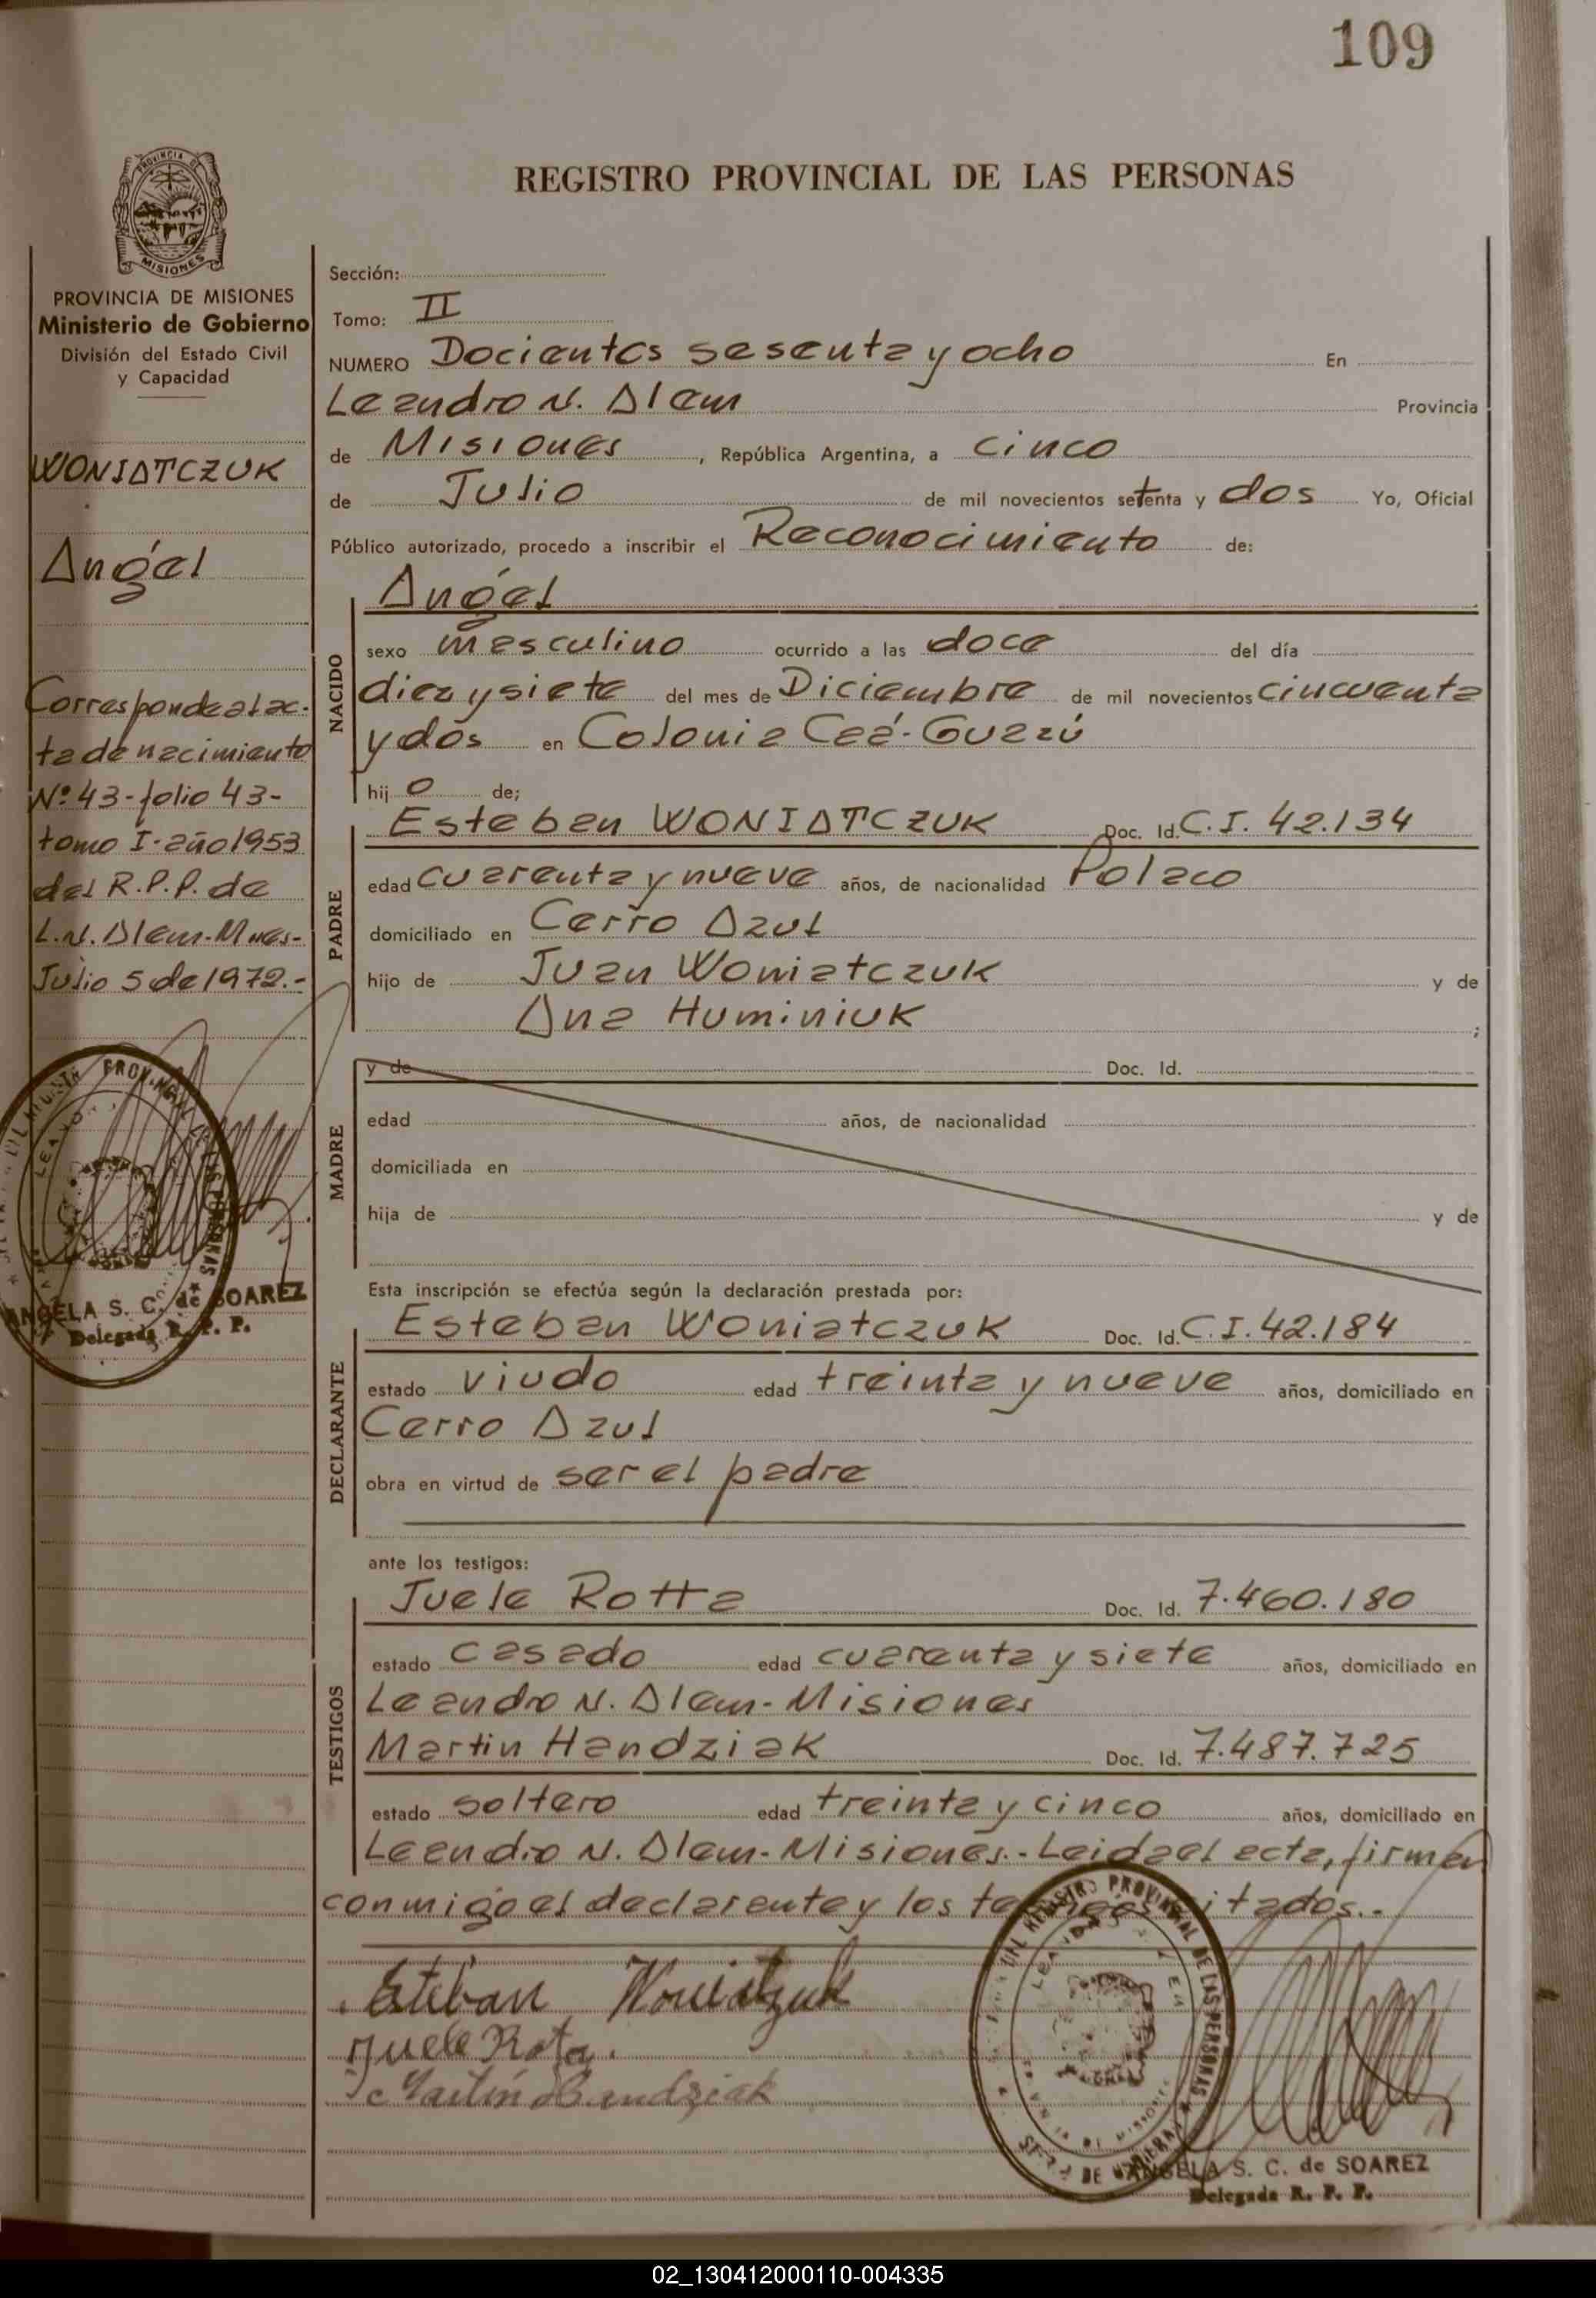 109
REGISTRO PROVINCIAL DE LAS PERSONAS
PROVINCIA DE
MISIONES
PROVINCIA DE MISIONES
Ministerio de Gobierno
División del Estado Civil
y Capacidad
WONIATCZUK
Angel
Corresponde al ac-
ta de nacimiento
Nº 43-folio 43-
tomo I-año 1953
del R.P.P. de
L.N. Alem-Mnes-
Julio 5 de 1972.-
ANGELA S. C. de SOAREZ
Delegada R. P. P.
Sección:
Tomo: II
NUMERO Docientos sesenta y ocho En
Leandro N. Alem Provincia
de Misiones, República Argentina, a cinco
de Julio de mil novecientos setenta y dos Yo, Oficial
Público autorizado, procedo a inscribir el Reconocimiento de:
NACIDO
Angel
sexo masculino ocurrido a las doce del día
diez y siete del mes de Diciembre de mil novecientos cincuenta
y dos en Colonia Caá-Guazú
hij o de;
PADRE
Esteban WONIATCZUK Doc. Id. C.I. 42.134
edad cuarenta y nueve años, de nacionalidad Polaco
domiciliado en Cerro Azul
hijo de Juan Woniatczuk y de
Ana Huminiuk ;
MADRE
y de Doc. Id.
edad años, de nacionalidad
domiciliada en
hija de y de
Esta inscripción se efectúa según la declaración prestada por:
DECLARANTE
Esteban Woniatczuk Doc. Id. C.I. 42.184
estado viudo edad treinta y nueve años, domiciliado en
Cerro Azul
obra en virtud de ser el padre
ante los testigos:
TESTIGOS
Juele Rotta Doc. Id. 7.460.180
estado casado edad cuarenta y siete años, domiciliado en
Leandro N. Alem-Misiones
Martin Handziak Doc. Id. 7.487.725
estado soltero edad treinta y cinco años, domiciliado en
Leandro N. Alem-Misiones.- Leida el acta, firman
conmigo el declarante y los testigos citados.-
Esteban Woniatzuk
Juele Rota.
Martin Handziak
REGISTRO PROVINCIAL DE LAS PERSONAS
ANGELA S. C. de SOAREZ
Delegada R. P. P.
02_130412000110-004335